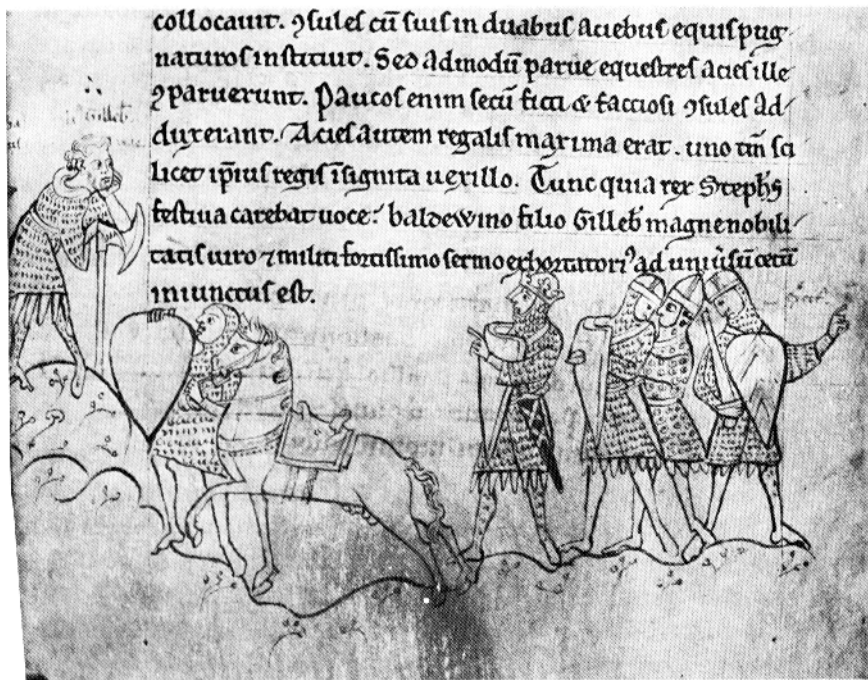 collocauit. ꝯsules cū suis in duabus aciebus equis pug
naturos instituit. Sed admodū parue equestres acies ille
ꝯparuerunt. Paucos enim secū ficti & facciosi ꝯsules ad
duxerant. Acies autem regalis maxima erat. uno tm̄ sci
licet ip̄ius regis īsignita uexillo. Tunc quia rex Stephs
festiua carebat uoce: baldewino filio Gilleb̄ magne nobili
tatis uiro ⁊ militi fortissimo sermo exhortatori⁹ ad uniūsū cetū
iniunctus est.
Gilleb̄